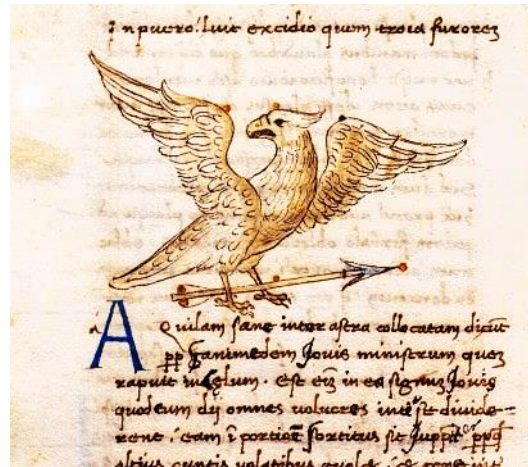 in puero. luit excidio quem troia furorez
Aquilam sane inter astra collocatam dicūt
pp ganimedem Jovis ministrum quez
rapuit in celum. Est eiz in ea signuz Jovis
quod cum dij omnes volucres inter se divide-
rent, eam ī portiōe sortitus sit Juppiter
altius cunctis volatibus